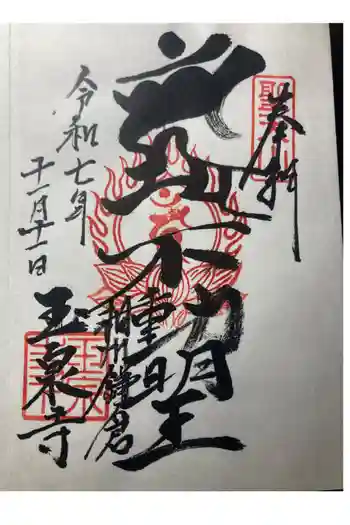 奉拝
不動明王
相州鎌倉
玉泉寺
令和七年
十一月十一日